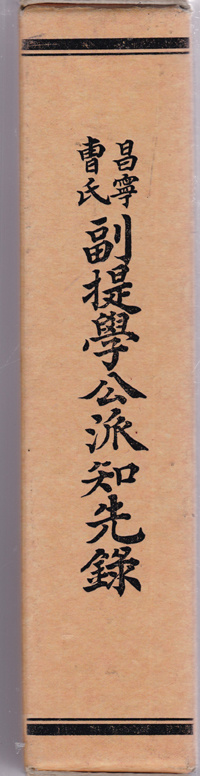 昌寧
曺氏
副提學公派知先錄